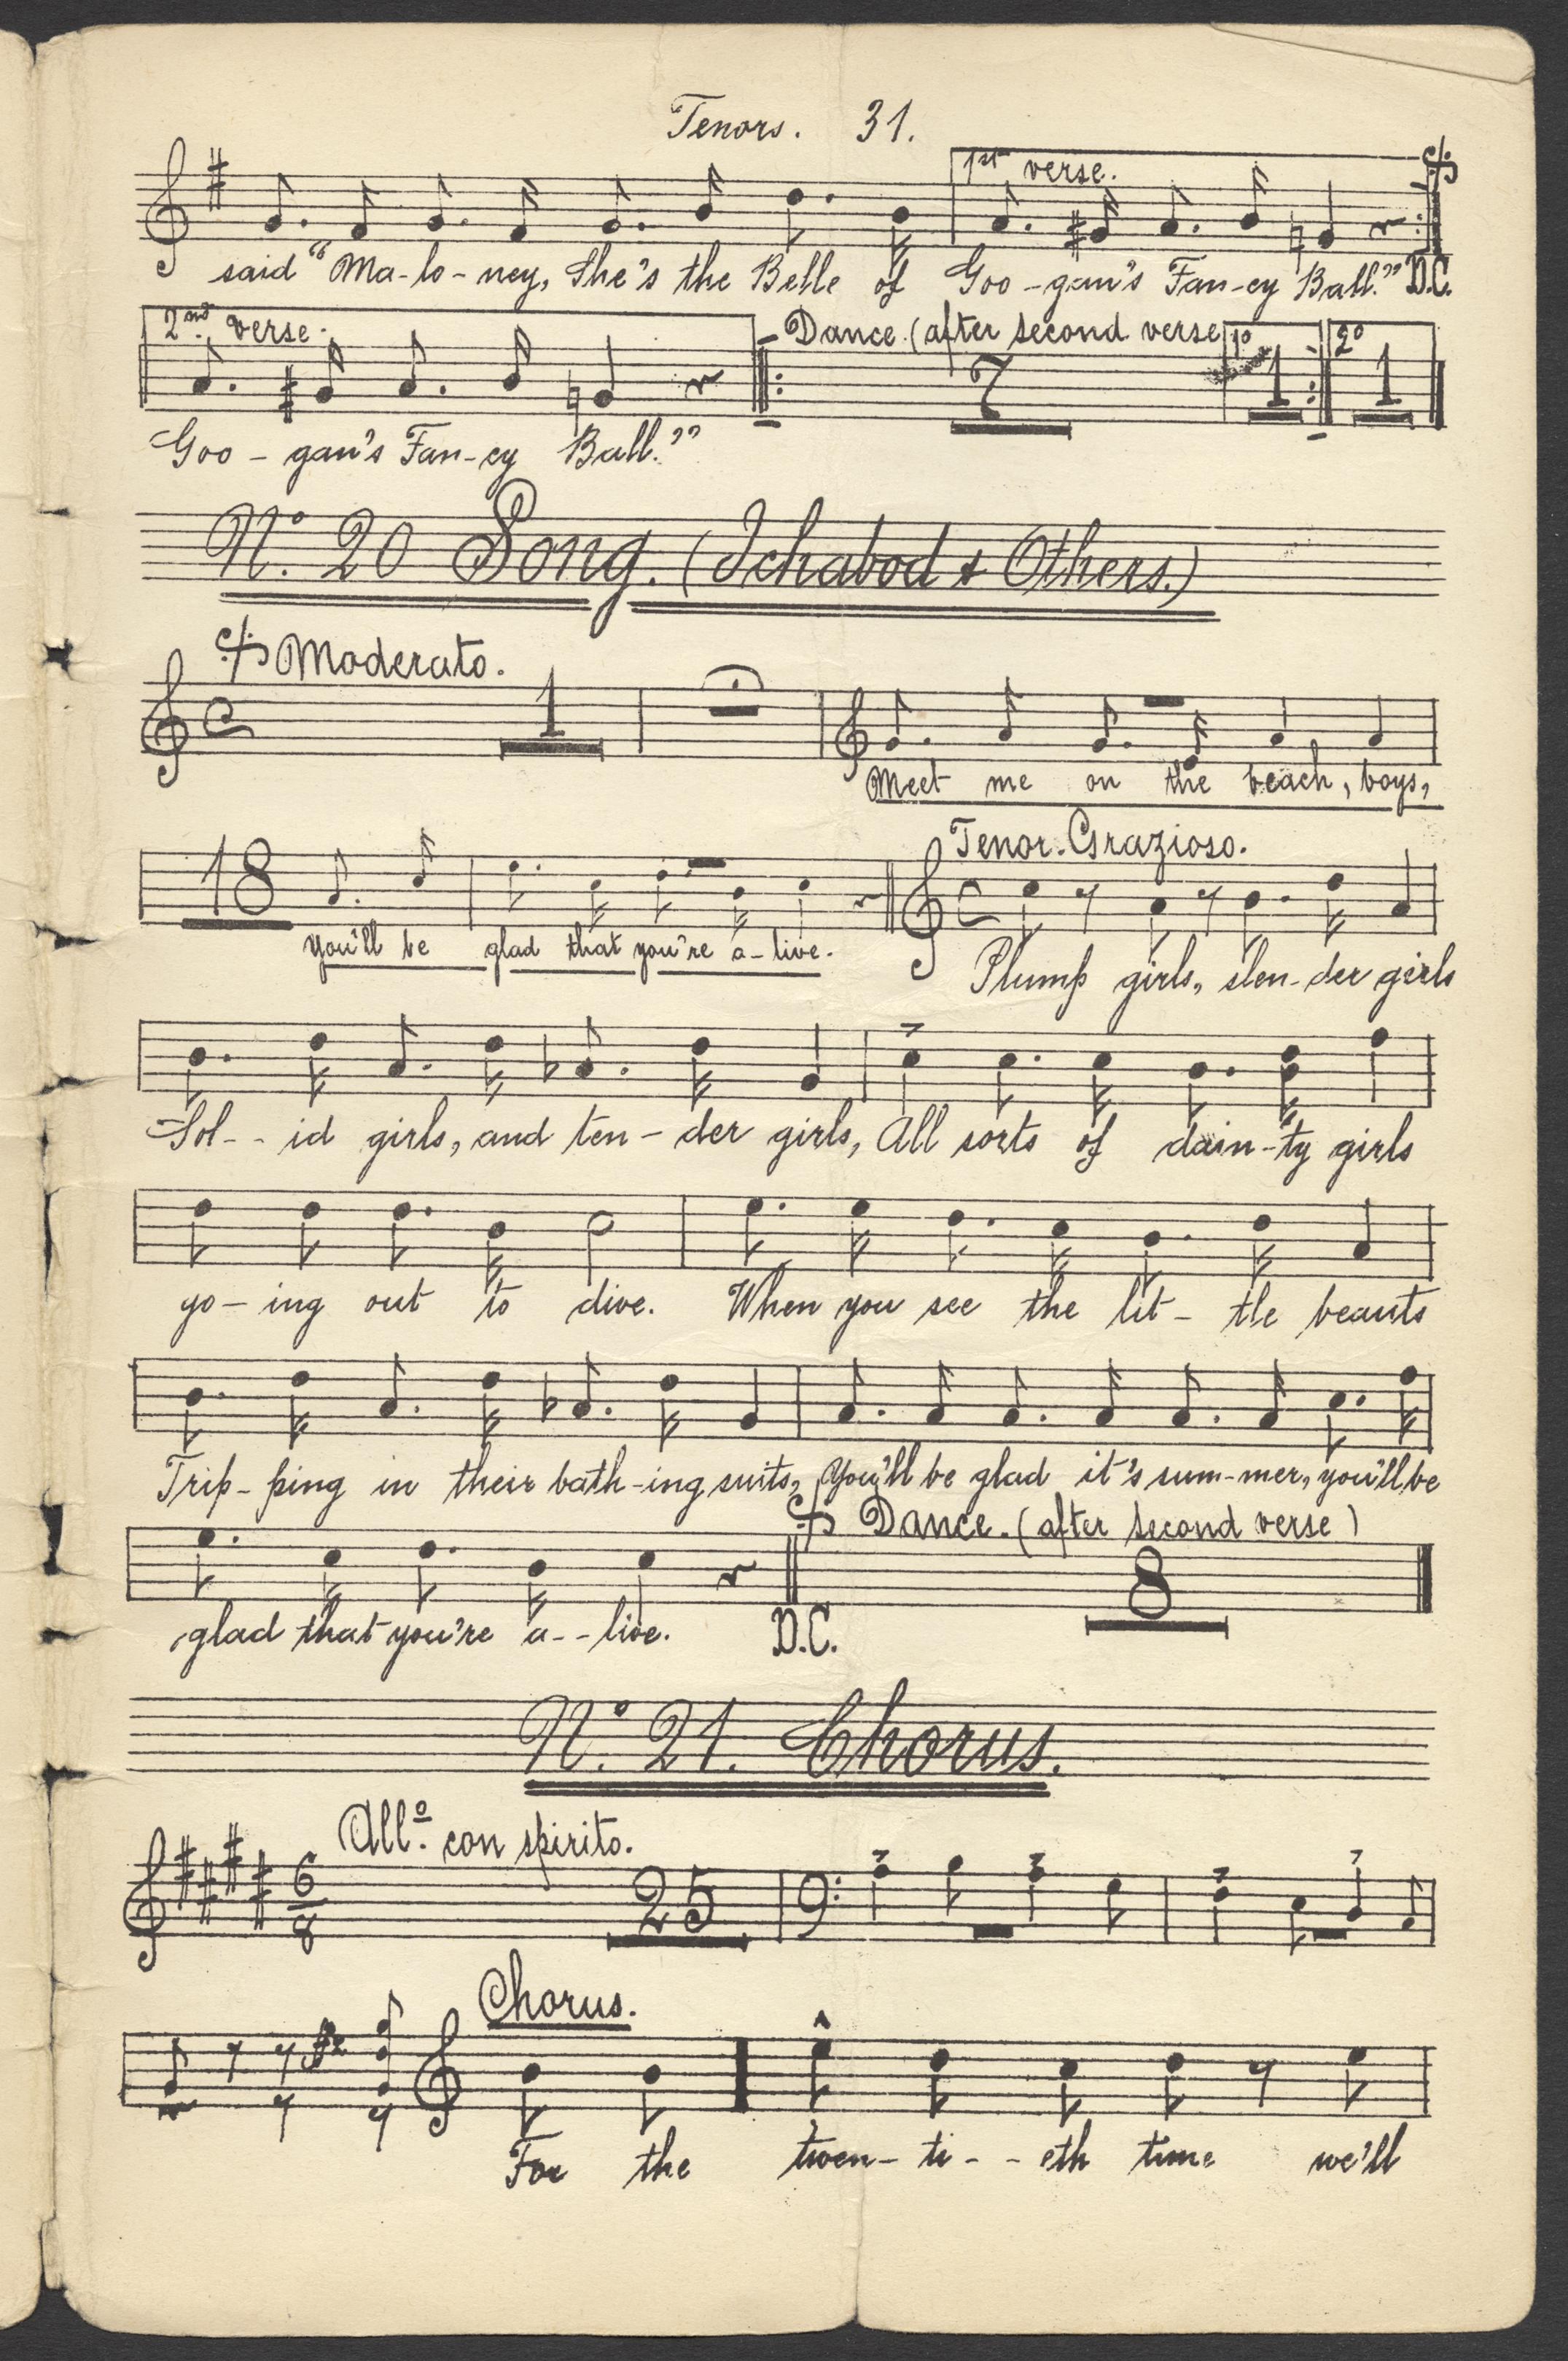 Tenors. 31.
1st verse.
said "Ma-lo-ney, She's the Belle of Goo-gan's Fan-cy Ball." D.C.
2nd verse. Dance. (after second verse 1o 2o
7 1 1
Goo-gan's Fan-cy Ball."
No. 20 Song. (Ichabod & Others.)
Moderato.
1
Meet me on the beach, boys,
Tenor. Grazioso.
18
You'll be glad that you're a-live.
Plump girls, slen-der girls
Sol--id girls, and ten-der girls, All sorts of dain-ty girls
go-ing out to dive. When you see the lit-tle beauts
Trip-ping in their bath-ing suits, You'll be glad it's sum-mer, you'll be
Dance. (after second verse)
8
glad that you're a--live. D.C.
No. 21. Chorus.
Allo. con spirito.
6/8 25
Chorus.
For the twen-ti--eth time we'll